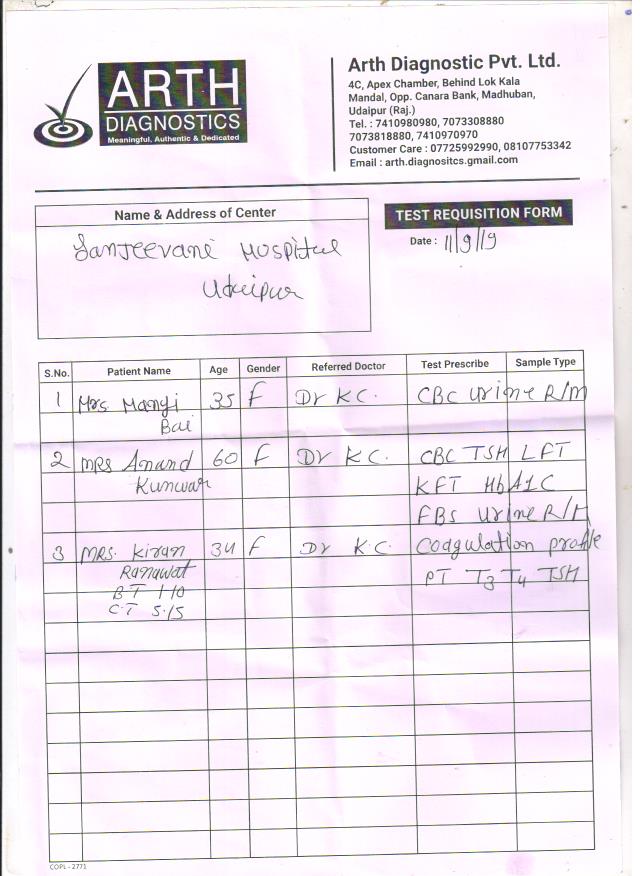 ARTH
DIAGNOSTICS
Meaningful, Authentic & Dedicated
Arth Diagnostic Pvt. Ltd.
4C, Apex Chamber, Behind Lok Kala
Mandal, Opp. Canara Bank, Madhuban,
Udaipur (Raj.)
Tel. : 7410980980, 7073308880
7073818880, 7410970970
Customer Care : 07725992990, 08107753342
Email : arth.diagnositcs.gmail.com
Name & Address of Center
Sanjeevani Hospital
Udaipur
TEST REQUISITION FORM
Date : 11/9/19
S.No. Patient Name Age Gender Referred Doctor Test Prescribe Sample Type
1 Mrs. Mangi 35 F Dr K.C. CBC Urine R/M
Bai
2 MRS Anand 60 F Dr K.C. CBC TSH LFT
Kunwar KFT HbA1C
FBS Urine R/M
3 MRS. Kiran 34 F Dr K.C. Coagulation profile
Ranawat PT T3 T4 TSH
B.T 1.10
C.T 5.15
COPL - 2771